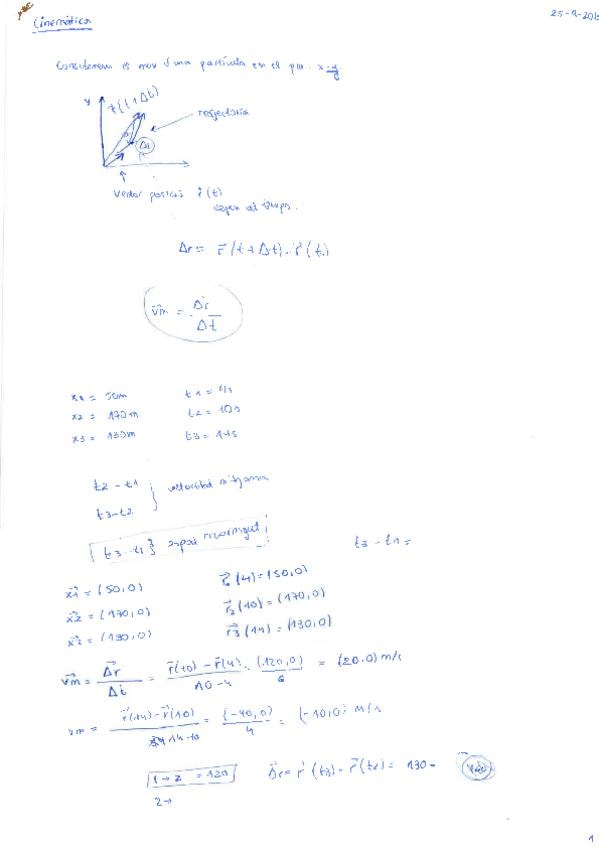 25-9-201
Cinemàtica
Considerem el mov d'una partícula en el pla x-y
y
r(t+Δt)
trajectòria
Δr
Vector posició r⃗(t)
segon el temps.
Δr = r⃗(t+Δt) - r⃗(t)
v⃗m = Δr⃗ / Δt
x1 = 50m t1 = 4s
x2 = 170m t2 = 10s
x3 = 130m t3 = 14s
t2 - t1 } velocitat mitjana
t3 - t2
t3 - t1 } espai recorregut
t3 - t1 =
x⃗1 = (50,0) r⃗1(4) = (50,0)
x⃗2 = (170,0) r⃗2(10) = (170,0)
(130,0) r⃗3(14) = (130,0)
v⃗m = Δr⃗ / Δt = r⃗(10) - r⃗(4) / 10-4 = (120,0) / 6 = (20,0) m/s
vm = r⃗(14) - r⃗(10) / 14-10 = (-40,0) / 4 = (-10,0) m/s
1→2 = 120 Δ⃗r = r⃗(t3) - r⃗(t2) = 130 -
2→
1